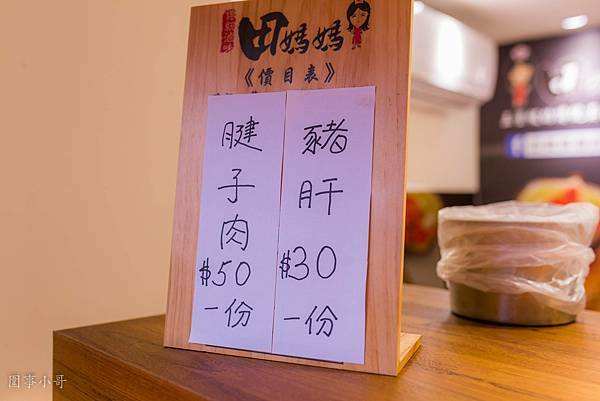 田媽媽
《價目表》
豬肝
$30
一份
腱子肉
$50
一份
圍事小哥